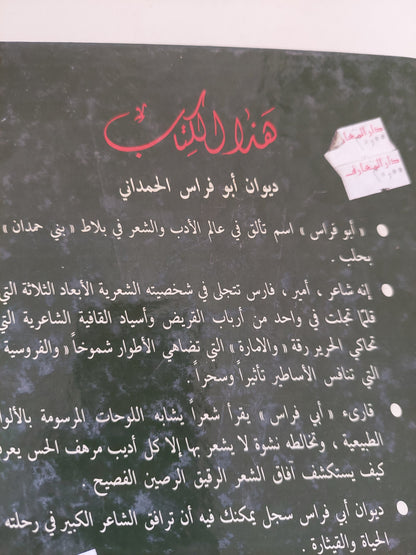 هَذَا الكِتَابُ
دار المعارف
دار المعارف
ديوان أبو فراس الحمداني
« أبو فراس » اسم تألق في عالم الأدب والشعر في بلاط « بني حمدان »
بحلب .
إنه شاعر ، أمير ، فارس تتجلى في شخصيته الشعرية الأبعاد الثلاثة التي
قلّما تجلت في واحد من أرباب القريض وأسياد القافية الشاعرية التي
تحاكي الحرير رقة « والامارة » التي تضاهي الأطوار شموخاً « والفروسية
التي تنافس الأساطير تأثيراً وسحراً .
قارىء « أبي فراس » يقرأ شعراً يشابه اللوحات المرسومة بالألوا
الطبيعية ، وتخالطه نشوة لا يشعر بها إلا كل أديب مرهف الحس يعرف
كيف يستكشف آفاق الشعر الرقيق الرصين الفصيح .
ديوان أبي فراس سجل يمكنك فيه أن ترافق الشاعر الكبير في رحلته
الحياة والقيثارة .